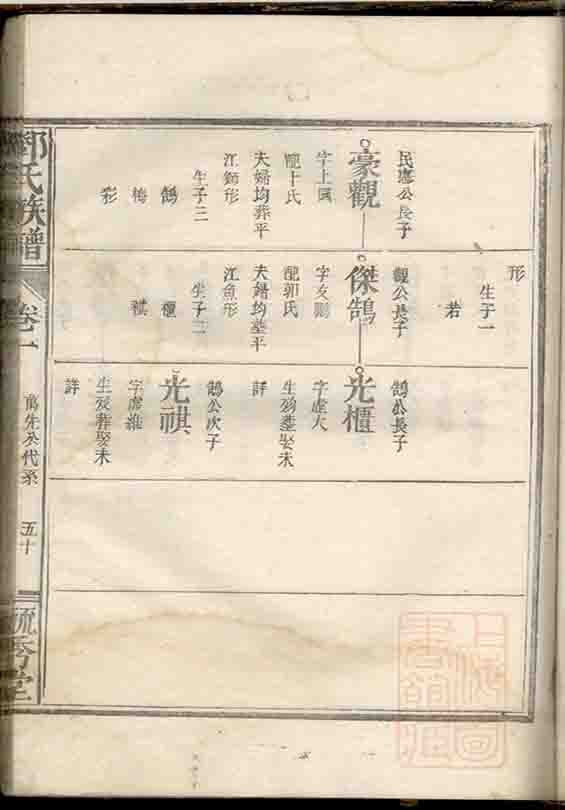 民憲公長子
豪觀
字上國
配丁氏
夫婦均葬平
江獅形
生子三
鵠
梅
彩
形
生子一
若
觀公長子
傑鵠
字友則
配郭氏
夫婦均塟平
江魚形
生子二
櫃
祺
鵠公長子
光櫃
字虛大
生歿塟娶未
詳
鵠公次子
光祺
字虛維
生歿葬娶未
詳
鄧氏族譜
卷一
五十
毓秀堂